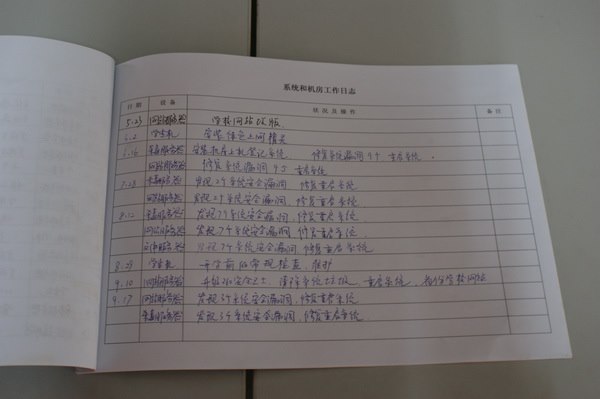 系统和机房工作日志
日期 设备 状况及操作 备注
5.23 网站服务器 学校网站改版
学生机 安装 上网精灵
安装机房上机登记系统 修复系统漏洞9个 重启系统
网站服务器 修复系统漏洞9个 重启系统
7.28 服务器 发现2个系统安全漏洞,修复重启系统
服务器 发现2个系统安全漏洞,修复重启系统
8.12 服务器 发现7个系统安全漏洞,修复重启系统
网站服务器 发现7个系统安全漏洞,修复重启系统
服务器 发现7个系统安全漏洞,修复重启系统
8.29 学生机 开学前的常规检查,维护
9.10 网站服务器 升级360安全卫士,清除系统垃圾,重启系统,备份学校网站
9.17 网站服务器 发现3个系统安全漏洞,修复重启系统
服务器 发现3个系统安全漏洞,修复重启系统